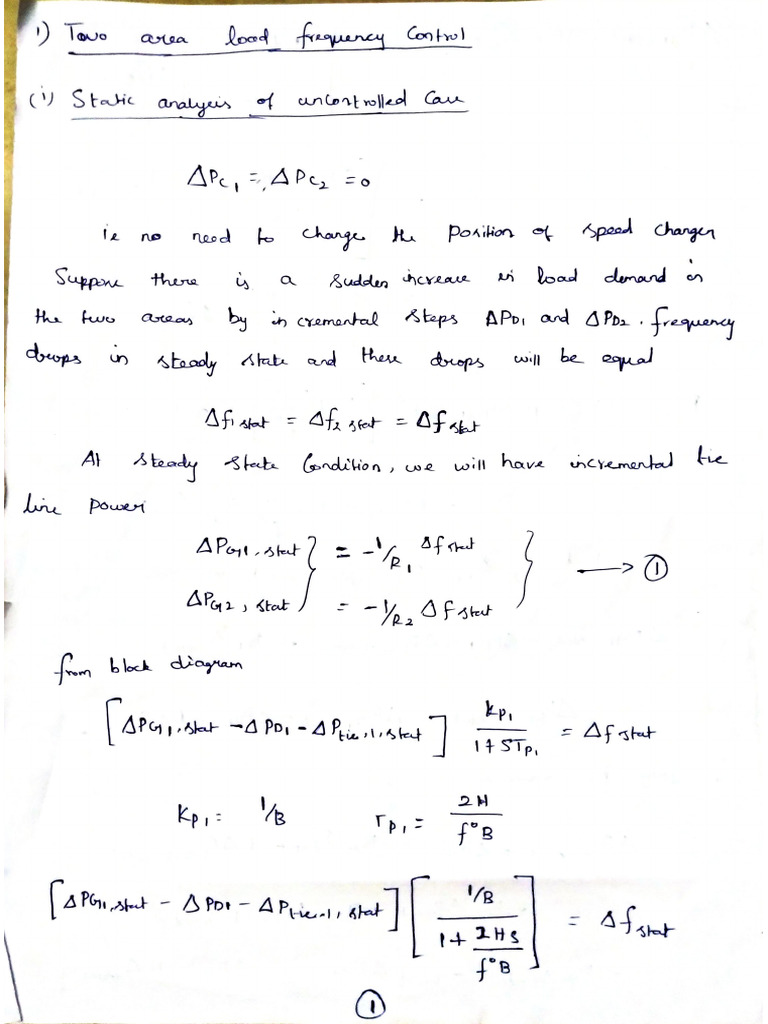 1) Two area load frequency Control
(i) Static analysis of uncontrolled Case
ΔPc1 = ΔPc2 = 0
ie no need to change the position of speed changer
Suppose there is a sudden increase in load demand in
the two areas by incremental steps ΔPD1 and ΔPD2. frequency
drops in steady state and these drops will be equal
Δf1 stat = Δf2 stat = Δf stat
At steady state Condition, we will have incremental tie
line power
ΔPG1, stat } = -1/R1 Δf stat }
ΔPG2, stat } = -1/R2 Δf stat } → ①
from block diagram
[ΔPG1, stat - ΔPD1 - ΔPtie,1, stat] kp1 / 1+STp1 = Δf stat
Kp1 = 1/B Tp1 = 2H / f°B
[ΔPG1, stat - ΔPD1 - ΔPtie-1, stat] [1/B / 1+ 2HS / f°B] = Δf stat
①